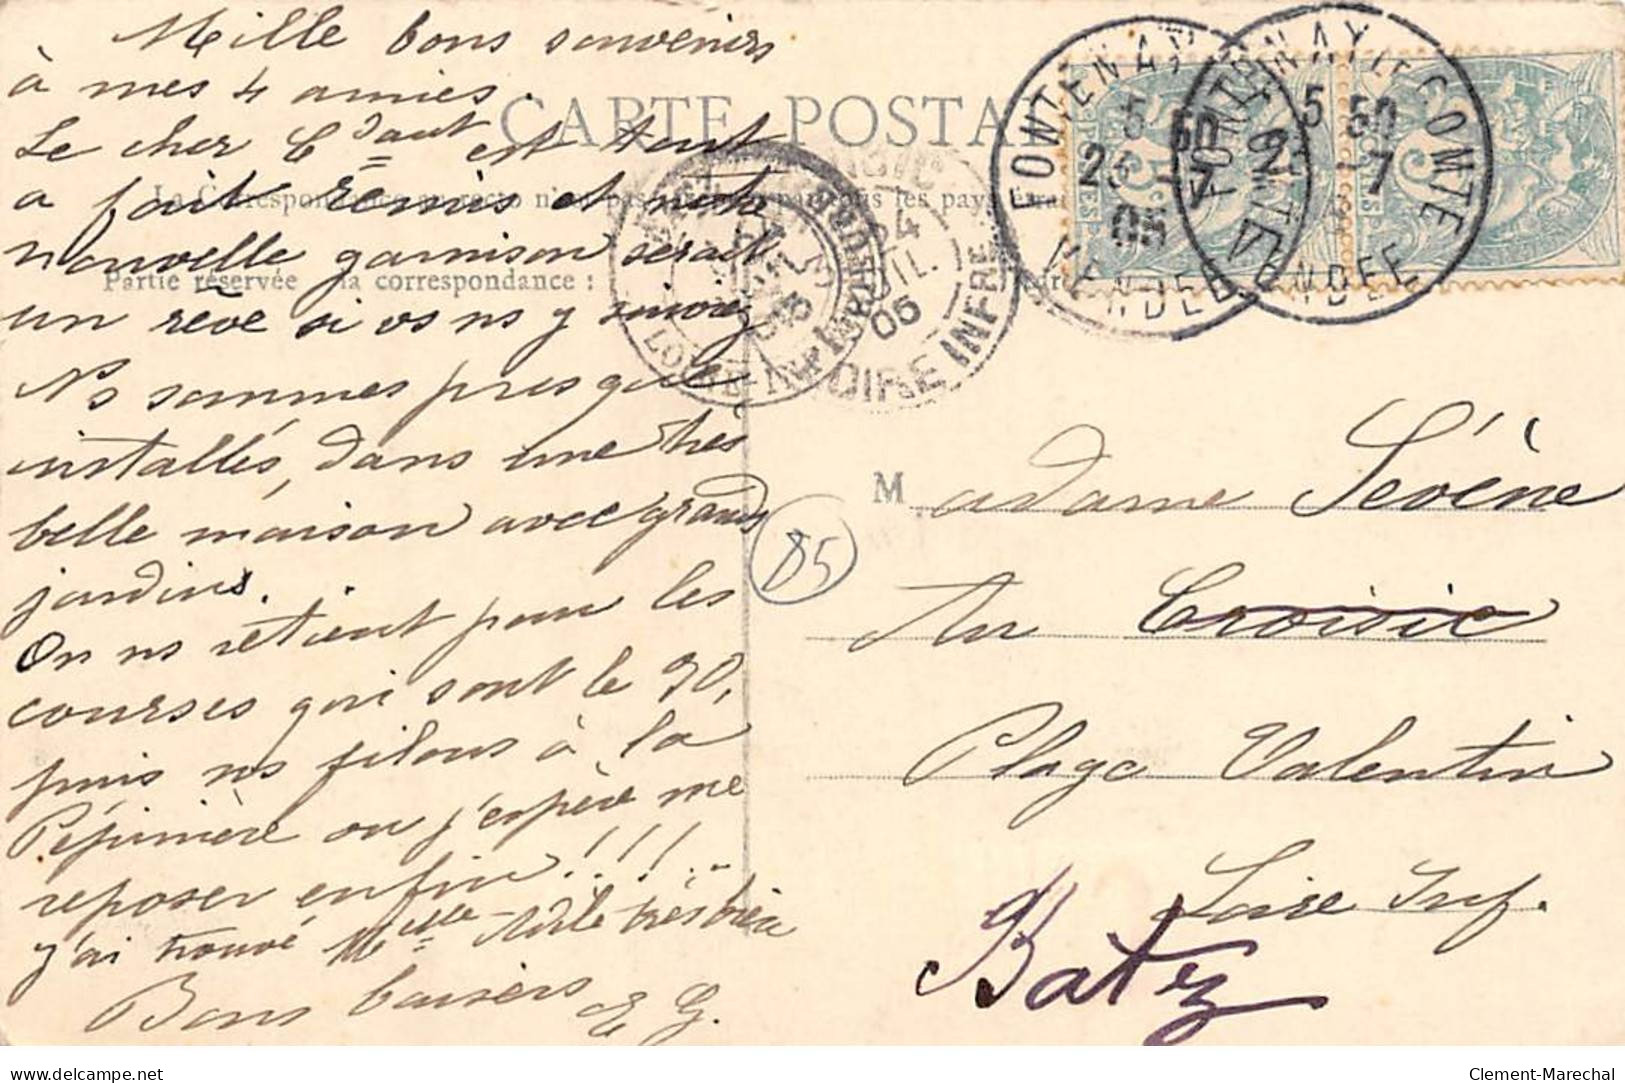 Mille bons souvenirs
à mes 4 amies.
Le cher Cdaut est tout
a fait remis et notre
nouvelle garnison serait
un rêve si vs ns y suiviez
Ns sommes presque
installés, dans une très
belle maison avec grands
jardins.
On ns retient pour les
courses qui sont le 30,
puis ns filons à la
Pépinière ou j'espère me
reposer enfin!!!..
j'ai trouvé Melle très bien
Bons baisers E G.
CARTE POSTA
La Correspondance au recto n'
Partie réservée à la correspondance :
FONTENAY LE COMTE
5 50
25 -7
05
VENDEE
FONTENAY LE COMTE
5 50
25 -7
VENDEE
24
JUIL.
05
LOIRE INFRE
LOIRE-INFRE
85
Madame Sévène
Au Croisic
Plage Valentin
Loire Inf.
Batz
delcampe.net
Clement-Marechal